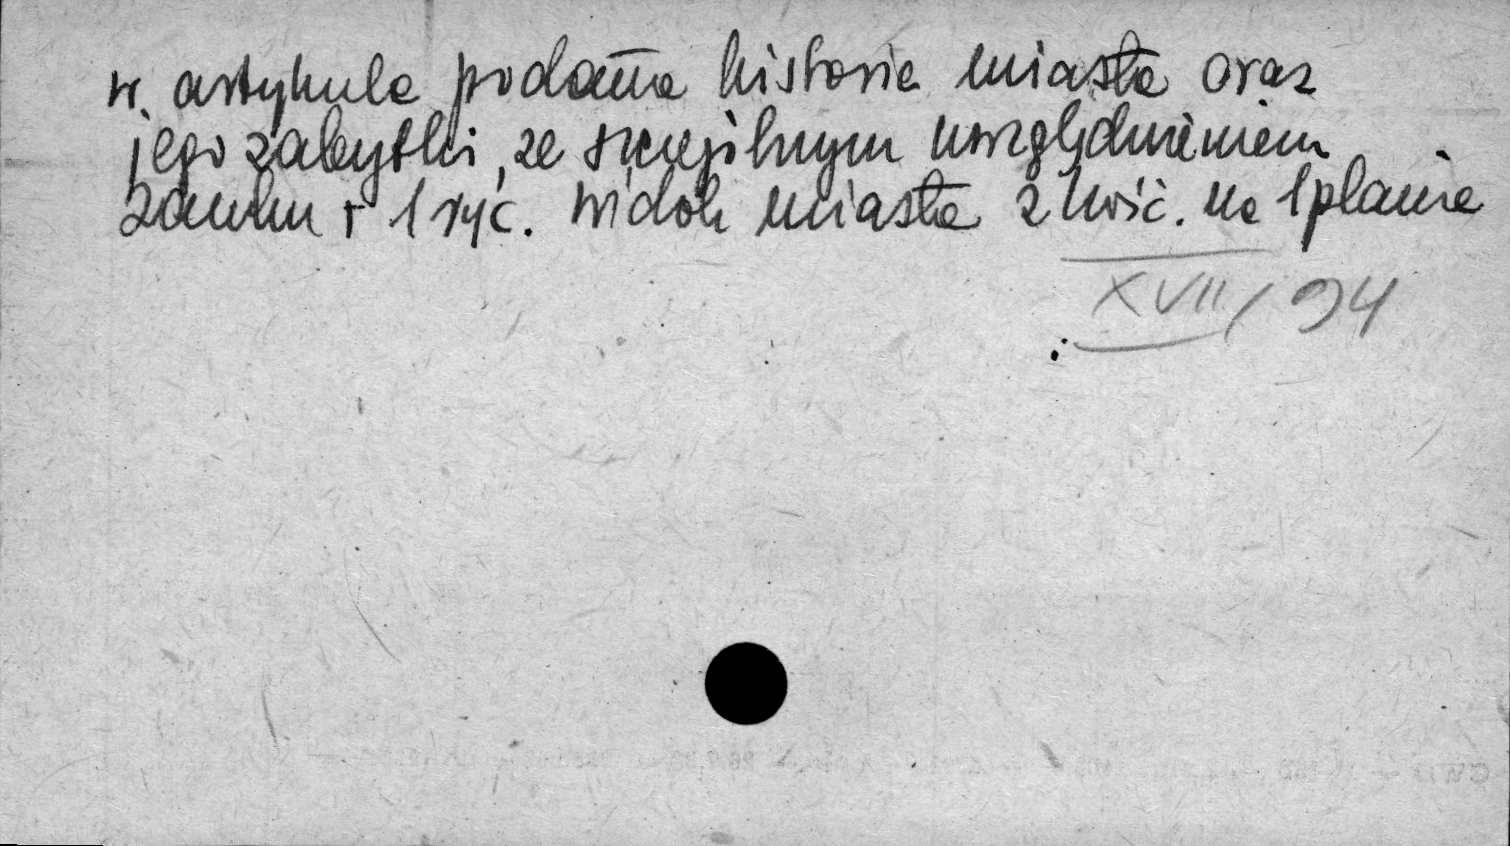 w artykule podana historia miasta oraz
jego zabytki, ze szczególnym uwzględnieniem
zamku + 1 ryc. widok miasta z kość. na 1 planie
XVII/94